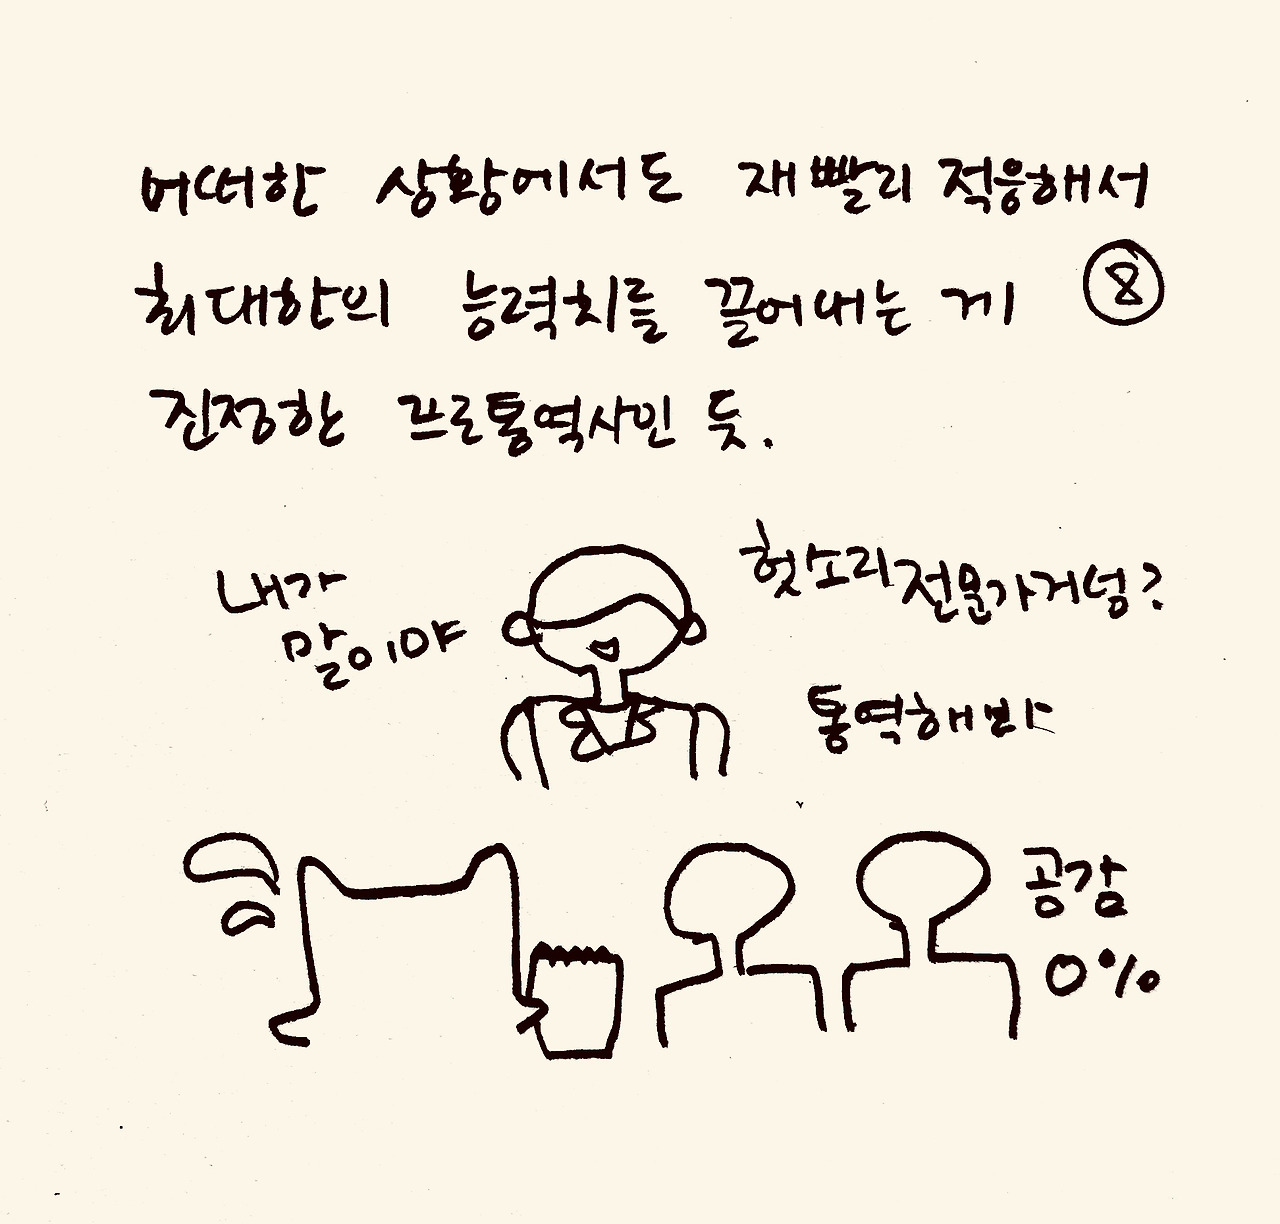 어떠한 상황에서도 재빨리 적응해서
최대한의 능력치를 끌어내는 게
⑧
진정한 프로통역사인 듯.
내가
말이야
헛소리 전문가거넝?
통역해봐
공감
0%